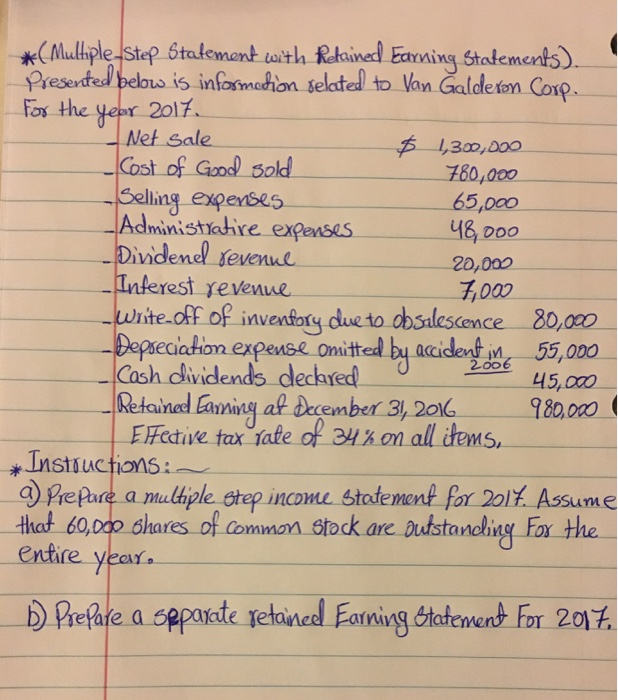 *(Multiple-Step Statement with Retained Earning Statements).
Presented below is information related to Van Galderen Corp.
For the year 2017.
- Net Sale $ 1,300,000
- Cost of Good sold 780,000
- Selling expenses 65,000
- Administrative expenses 48,000
- Dividend revenue 20,000
- Interest revenue 7,000
- Write-off of inventory due to obsalescence 80,000
- Depreciation expense omitted by accident in 2006 55,000
- Cash dividends declared 45,000
- Retained Earning at December 31, 2016 980,000
Effective tax rate of 34% on all items,
* Instructions:
a) Prepare a multiple step income Statement for 2017. Assume
that 60,000 shares of common stock are outstanding For the
entire year.
b) Prepare a separate retained Earning Statement For 2017.